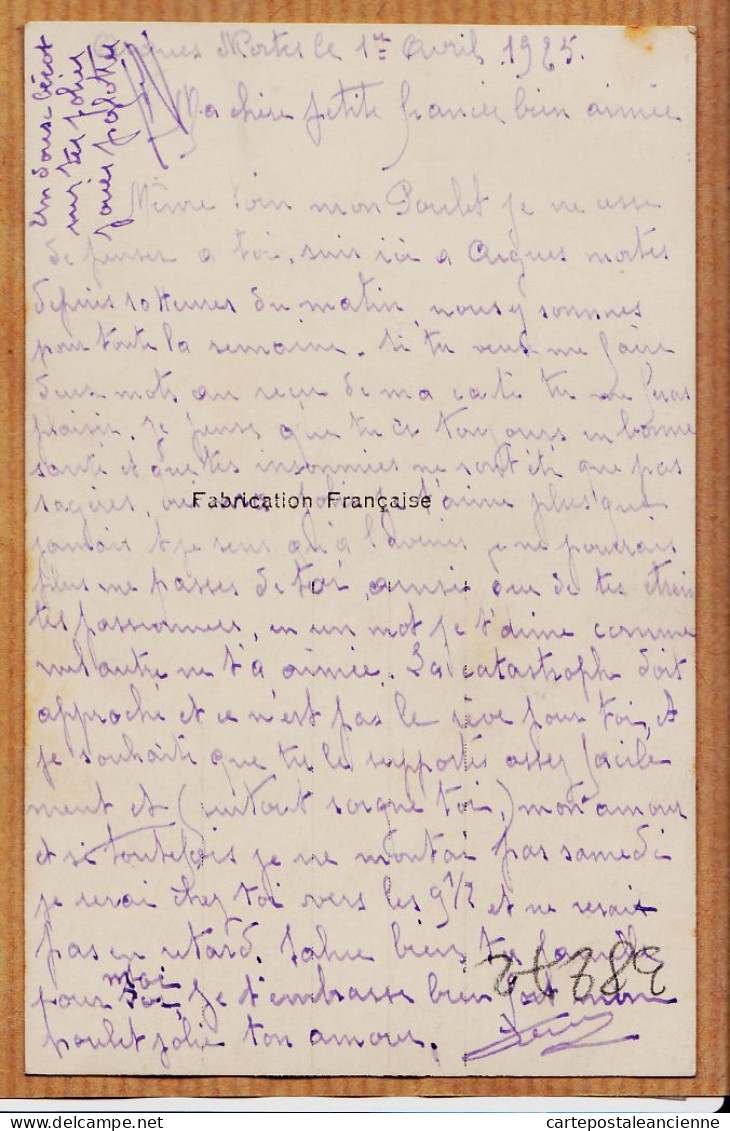 Aigues Mortes le 1er Avril 1925.
Ma chère petite fiancée bien aimée
un doux bécot
sur tes jolies
joues
Même loin mon Poulet je ne cesse
de penser a toi, suis ici a Aigues mortes
depuis 10 heures du matin, nous y sommes
pour toute la semaine. Si tu veux me faire
deux mots au reçu de ma carte tu me feras
plaisir. Je pense que tu es toujours en bonne
santé et que tes insomnies ne sont été que pas
Fabrication Française
sagères, oui t'aime plus que
jamais et je sens qu'a l'avenir je ne pourrais
plus me passer de toi, ainsi que de tes étrein
tes passionnées, en un mot je t'aime comme
nul autre ne t'a aimée. La catastrophe doit
approché et ce n'est pas le rêve pour toi, Et
je souhaite que tu le supportes assez facile
ment et (surtout soigne toi,) mon amour
et si toutefois je ne montai pas samedi
je serai chez toi vers les 9 1/2 et ne serait
pas en retard. Salue bien ta famille
pour moi, Je t'embrasse bien fort mon
poulet jolie ton amour.
38272
cartepostaleancienne